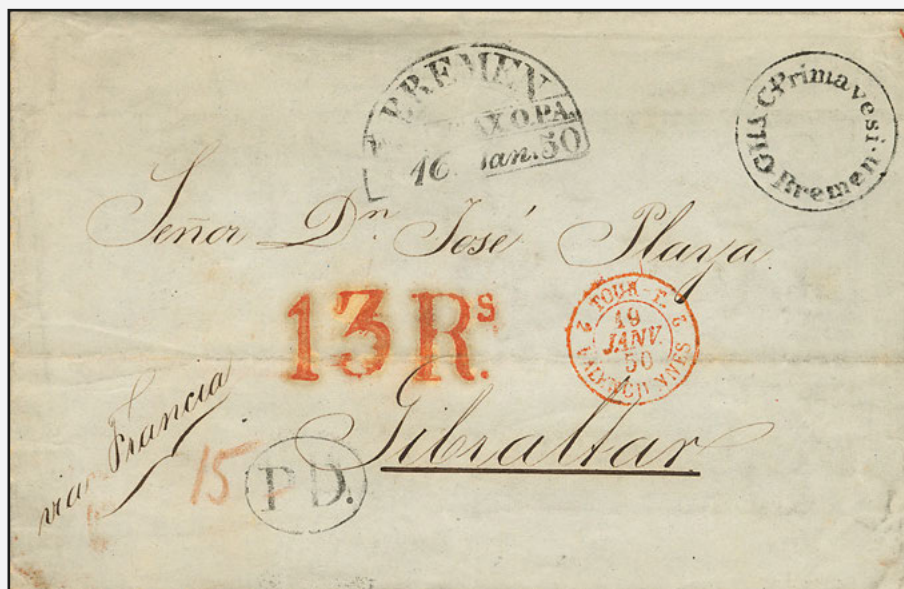 BREMEN
16. Jan. 50
C Primavesi.
Bremen.
Señor Dn José Playa
13 Rs.
2 TOUR-T. 2
19
JANV.
50
VALENCIENNES
via Francia
Gibraltar
15
P.D.